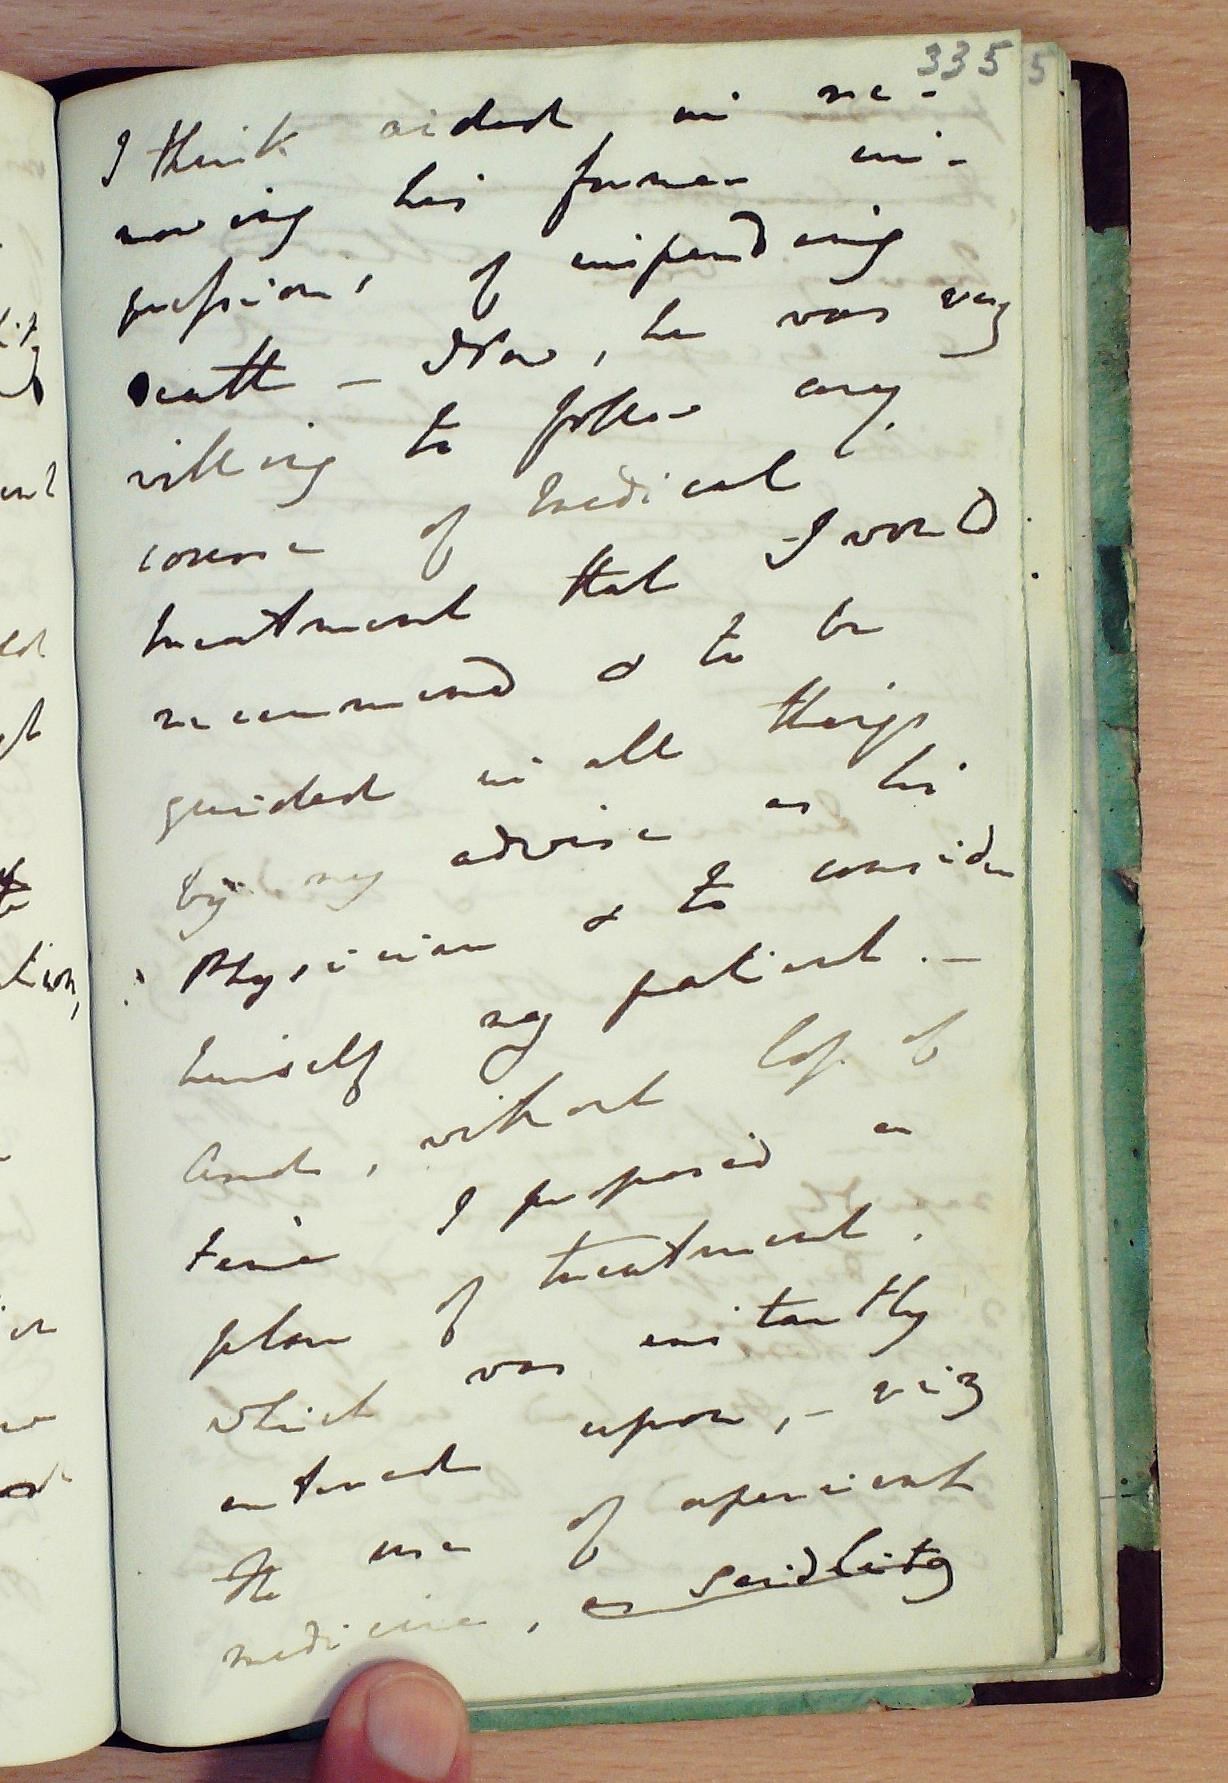 335
I think aided, in re-
moving his former im-
pressions of impending
death - Now, he was very
willing to follow any
course of medical
treatment that I would
recommend & to be
guided in all things
by my advise as his
Physician & to consider
himself my patient. -
And, without loss of
time I proposed a
plan of treatment,
which was instantly
entered upon, - viz
the use of aperient
medicine, as Seidlitz